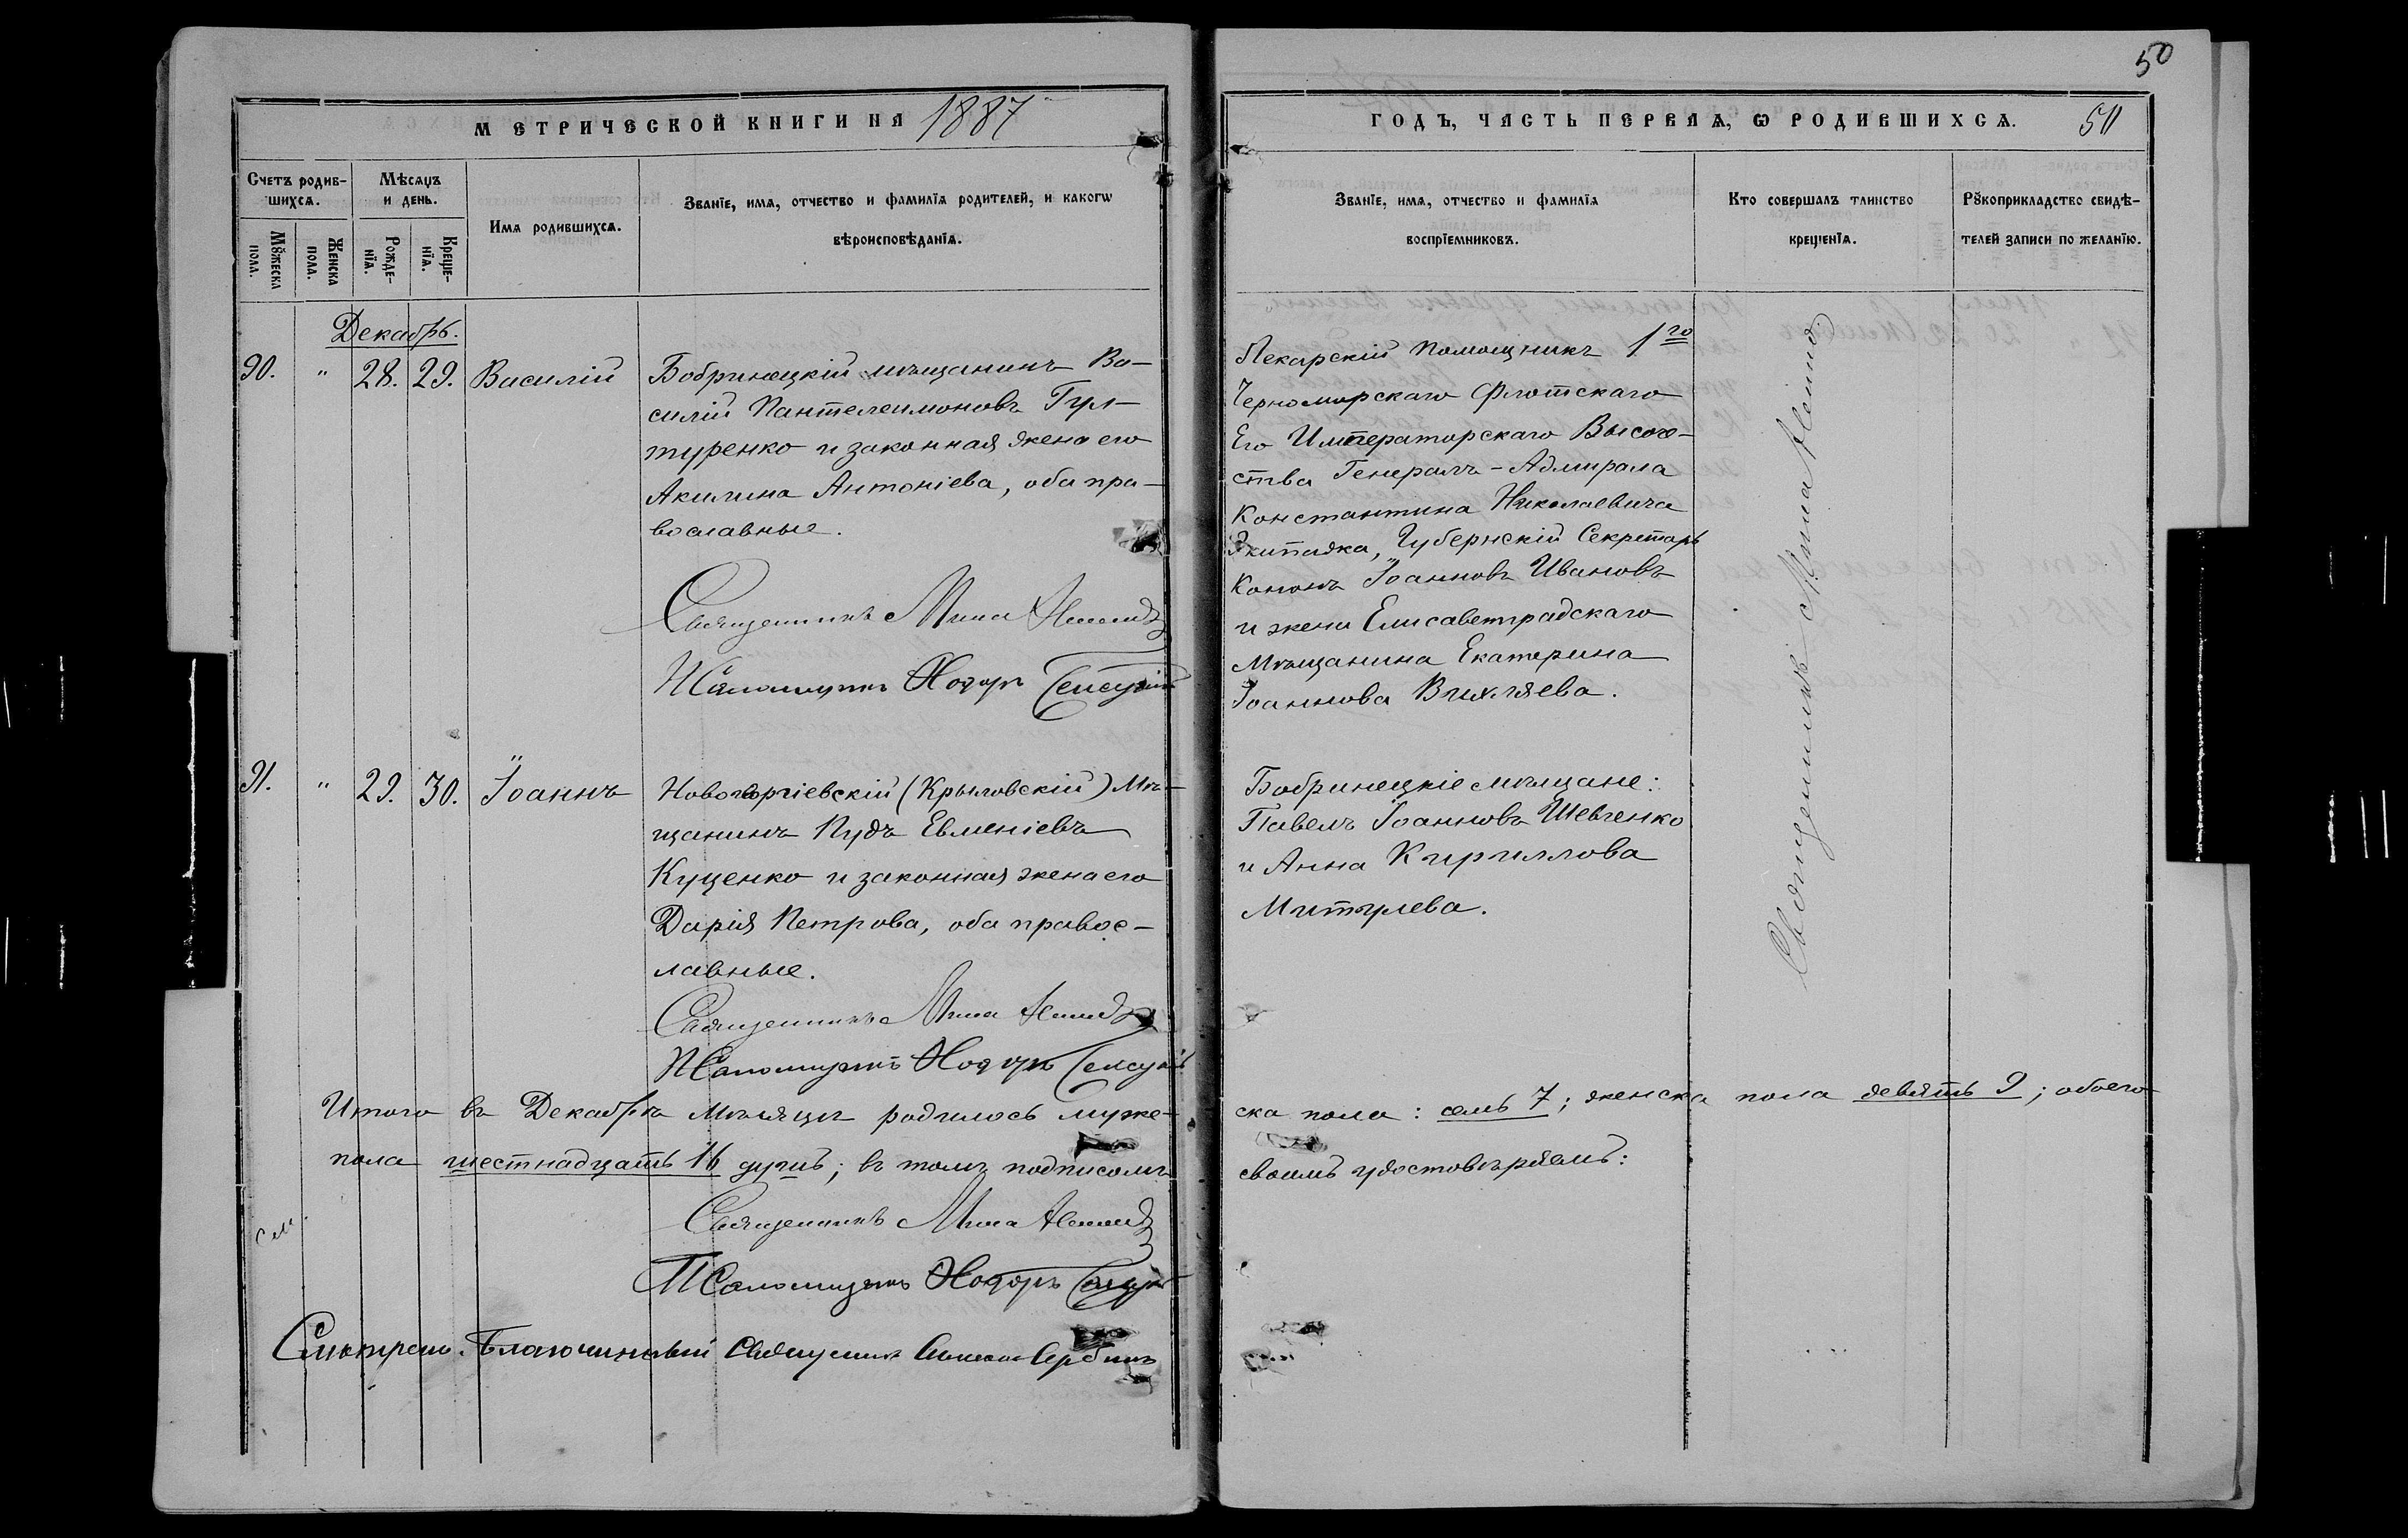 50
МЕТРИЧЕСКОЙ КНИГИ НА 1887
ГОДЪ, ЧАСТЬ ПЕРВАЯ, Ѡ РОДИВШИХСѦ.
Счетъ родив-
шихсѧ.
Мѣсѧцъ
и день.
Имѧ родившихсѧ.
Званїе, имѧ, отчество и фамилїѧ родителей, и какогѡ
вѣроисповѣданїѧ.
Мꙋжеска
пола.
Женска
пола.
Рожде-
нїѧ.
Креще-
нїѧ.
Званїе, имѧ, отчество и фамилїѧ
воспрїемниковъ.
Кто совершалъ таинство
крещенїѧ.
Рꙋкоприкладство свидѣ-
телей записи по желанїю.
Декабрь.
90. " 28. 29. Василій
Бобринецкій мѣщанинъ Ва-
силій Пантелеимоновъ Гул-
туренко и законная жена его
Акилина Антоніева, оба пра-
вославные.
Священникъ Мина
Псаломщикъ Ѳодоръ
Лекарскій Помощникъ 1го
Черноморскаго Флотскаго
Его Императорскаго Высоче-
ства Генералъ-Адмирала
Константина Николаевича
Экипажа, Губернскій Секретарь
Кононъ Іоанновъ Ивановъ
и жена Елисаветградскаго
Мѣщанина Екатерина
Іоаннова Вихляева.
Священникъ Мина
91. " 29. 30. Іоаннъ
Новогеоргіевскій (Крыловскій) Мѣ-
щанинъ Пудъ Евменіевъ
Куценко и законная жена его
Дарія Петрова, оба правос-
лавные.
Священникъ Мина
Псаломщикъ Ѳодоръ
Бобринецкіе мѣщане:
Павелъ Іоанновъ Шевченко
и Анна Кириллова
Митулева.
Итого въ Декабрѣ Мѣсяцѣ родилось муже-
ска пола: семь 7; женска пола девять 9; обоего
пола шестнадцать 16 душъ; въ томъ подписомъ
своимъ удостовѣряемъ:
Священникъ Мина
Псаломщикъ Ѳодоръ
Смотрелъ Благочинный Священникъ Сербинъ